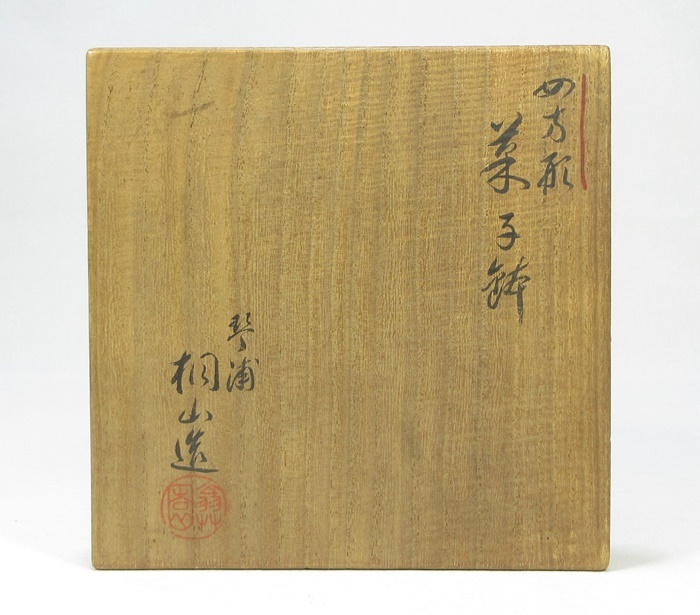 四方形
菓子鉢
琴浦
桐山造